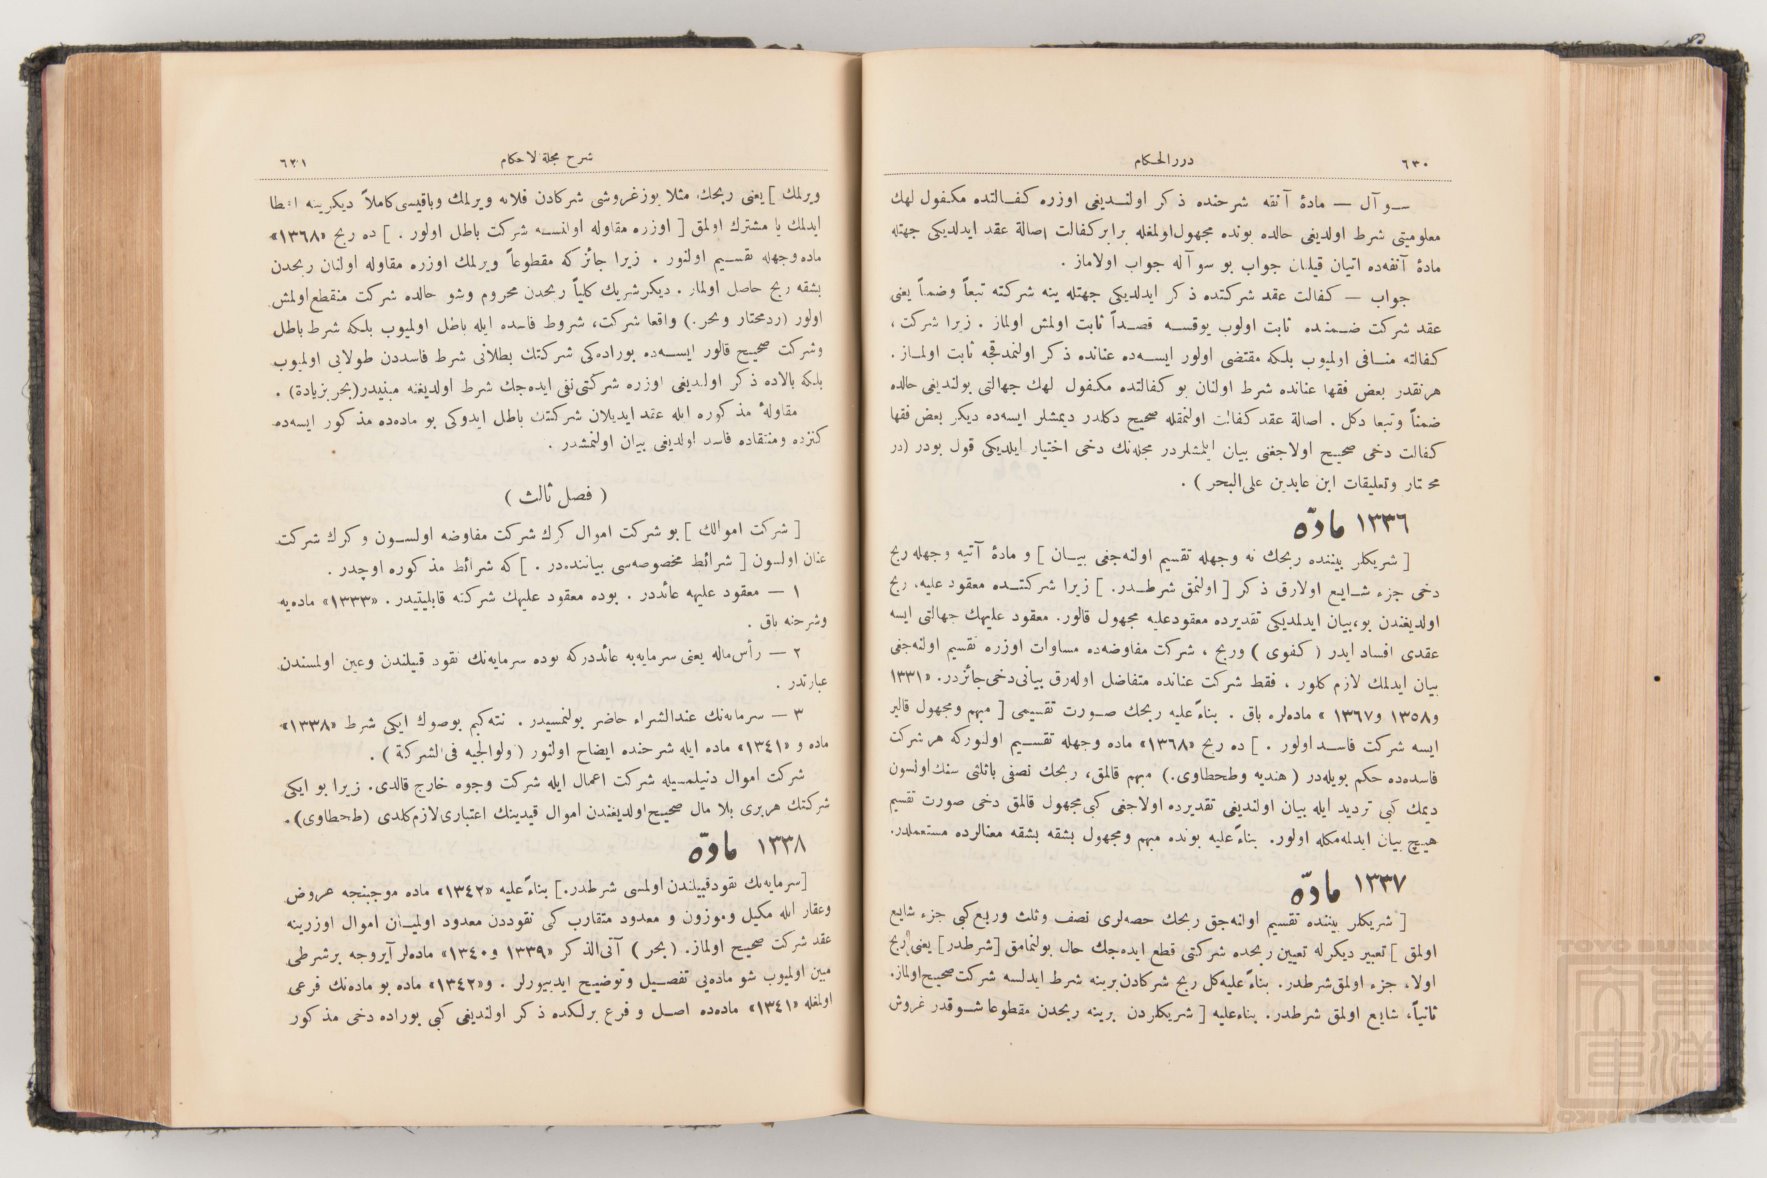 ٦٣٠
درر الحكام
سؤآل — مادهٔ آنفه شرحنده ذكر اولنديغى اوزره كفالتده مكفول لهك
معلوميتى شرط اولديغى حالده بونده مجهول اولمغله برابر كفالت اصالة عقد ايدلديكى جهتله
مادهٔ آنفه‌ده اتيان قيلنان جواب بو سوآله جواب اولاماز .
جواب — كفالت عقد شركتده ذكر ايدلديكى جهتله ينه شركته تبعاً وضمناً يعنى
عقد شركت ضمننده ثابت اولوب يوقسه قصداً ثابت اولمش اولماز . زيرا شركت ،
كفالته منافى اولميوب بلكه مقتضى اولور ايسه‌ده عنانده ذكر اولنمدقجه ثابت اولماز .
هرنقدر بعض فقها عنانده شرط اولنان بو كفالتده مكفول لهك جهالتى بولنديغى حالده
ضمناً وتبعا دكل . اصالة عقد كفالت اولنمقله صحيح دكلدر ديمشلر ايسه‌ده ديكر بعض فقها
كفالت دخى صحيح اولاجغنى بيان ايلمشلردر مجله‌نك دخى اختيار ايلديكى قول بودر (در
مختار وتعليقات ابن عابدين على البحر ) .
١٣٣٦ مادّه
[ شريكلر بيننده ربحك نه وجهله تقسيم اولنه‌جغى بيان ] و مادهٔ آتيه وجهله ربح
دخى جزء شايع اولارق ذكر [ اولنمق شرطدر. ] زيرا شركتده معقود عليه، ربح
اولديغندن بو، بيان ايدلمديكى تقديرده معقود عليه مجهول قالور. معقود عليهك جهالتى ايسه
عقدى افساد ايدر ( كفوى ) وربح ، شركت مفاوضه‌ده مساوات اوزره تقسيم اولنه‌جغى
بيان ايدلمك لازم كلور . فقط شركت عنانده متفاضل اوله‌رق بيانى دخى جائزدر. «١٣٣١
و١٣٥٨ و١٣٦٧ » ماده‌لره باق . بناءً عليه ربحك صورت تقسيمى [ مبهم ومجهول قالير
ايسه شركت فاسد اولور . ] ده ربح «١٣٦٨» ماده وجهله تقسيم اولنوركه هر شركت
فاسده‌ده حكم بويله‌در ( هنديه وطحطاوى.) مبهم قالمق، ربحك نصفى ياثلثى سنك اولسون
ديمك كبى ترديد ايله بيان اولنديغى تقديرده اولاجغى كبى مجهول قالمق دخى صورت تقسيم
هيچ بيان ايدلمه‌مكله اولور. بناءً عليه بونده مبهم ومجهول بشقه بشقه معنالرده مستعملدر.
١٣٣٧ مادّه
[ شريكلر بيننده تقسيم اولنه‌جق ربحك حصه‌لرى نصف وثلث وربع كبى جزء شايع
اولمق ] تعبير ديكرله تعيين ربحده شركتى قطع ايده‌جك حال بولنمامق [شرطدر] يعنى ربح
اولا، جزء اولمق شرطدر. بناءً عليه كل ربح شركادن برينه شرط ايدلسه شركت صحيح اولماز.
ثانياً، شايع اولمق شرطدر. بناءً عليه [ شريكلردن برينه ربحدن مقطوعا شو قدر غروش
شرح مجلة الاحكام
٦٣١
ويرلمك ] يعنى ربحك مثلا يوز غروشى شركادن فلانه ويرلمك وباقيسى كاملاً ديكرينه اعطا
ايدلمك يا مشترك اولمق [ اوزره مقاوله اولنسه شركت باطل اولور . ] ده ربح «١٣٦٨»
ماده وجهله تقسيم اولنور . زيرا جائزكه مقطوعاً ويرلمك اوزره مقاوله اولنان ربحدن
بشقه ربح حاصل اولماز . ديكر شريك كلياً ربحدن محروم وشو حالده شركت منقطع اولمش
اولور (ردمحتار وبحر.) واقعا شركت، شروط فاسده ايله باطل اولميوب بلكه شرط باطل
وشركت صحيح قالور ايسه‌ده بوراده‌كى شركتك بطلانى شرط فاسددن طولايى اولميوب
بلكه بالاده ذكر اولنديغى اوزره شركتى نفى ايده‌جك شرط اولديغنه مبنيدر(بحر بزيادة) .
مقاولهٔ مذكوره ايله عقد ايديلان شركتك باطل ايدوكى بو ماده‌ده مذكور ايسه‌ده
كنزده وملتقاده فاسد اولديغى بيان اولنمشدر .
( فصل ثالث )
[ شركت اموالك ] بو شركت اموال كرك شركت مفاوضه اولسون وكرك شركت
عنان اولسون [ شرائط مخصوصه‌سى بياننده‌در . ] كه شرائط مذكوره اوچدر .
١ — معقود عليهه عائددر . بوده معقود عليهك شركته قابليتيدر. «١٣٣٣» ماده‌يه
وشرحنه باق .
٢ — رأس ماله يعنى سرمايه‌يه عائددركه بوده سرمايه‌نك نقود قبيلندن وعين اولمسندن
عبارتدر .
٣ — سرمايه‌نك عندالشراء حاضر بولنمسيدر . نته‌كيم بو صوك ايكى شرط «١٣٣٨»
ماده و «١٣٤١» ماده ايله شرحنده ايضاح اولنور (ولوالجيه فى الشركة ) .
شركت اموال دنيلمسيله شركت اعمال ايله شركت وجوه خارج قالدى. زيرا بو ايكى
شركتك هربرى بلا مال صحيح اولديغندن اموال قيدينك اعتبارى لازم كلدى (طحطاوى).
١٣٣٨ مادّه
[سرمايه‌نك نقود قبيلندن اولمسى شرطدر.] بناءً عليه «١٣٤٢» ماده موجبنجه عروض
وعقار ايله مكيل وموزون و معدود متقارب كى نقوددن معدود اولميان اموال اوزرينه
عقد شركت صحيح اولماز. ( بحر ) آتى الذكر «١٣٣٩ و١٣٤٠» ماده‌لر آيروجه برشرطى
مبين اولميوب شو ماده‌يى تفصيل وتوضيح ايدييورلر . و«١٣٤٢» ماده بو ماده‌نك فرعى
اولمغله «١٣٤١» ماده‌ده اصل و فرع برلكده ذكر اولنديغى كبى بوراده دخى مذكور